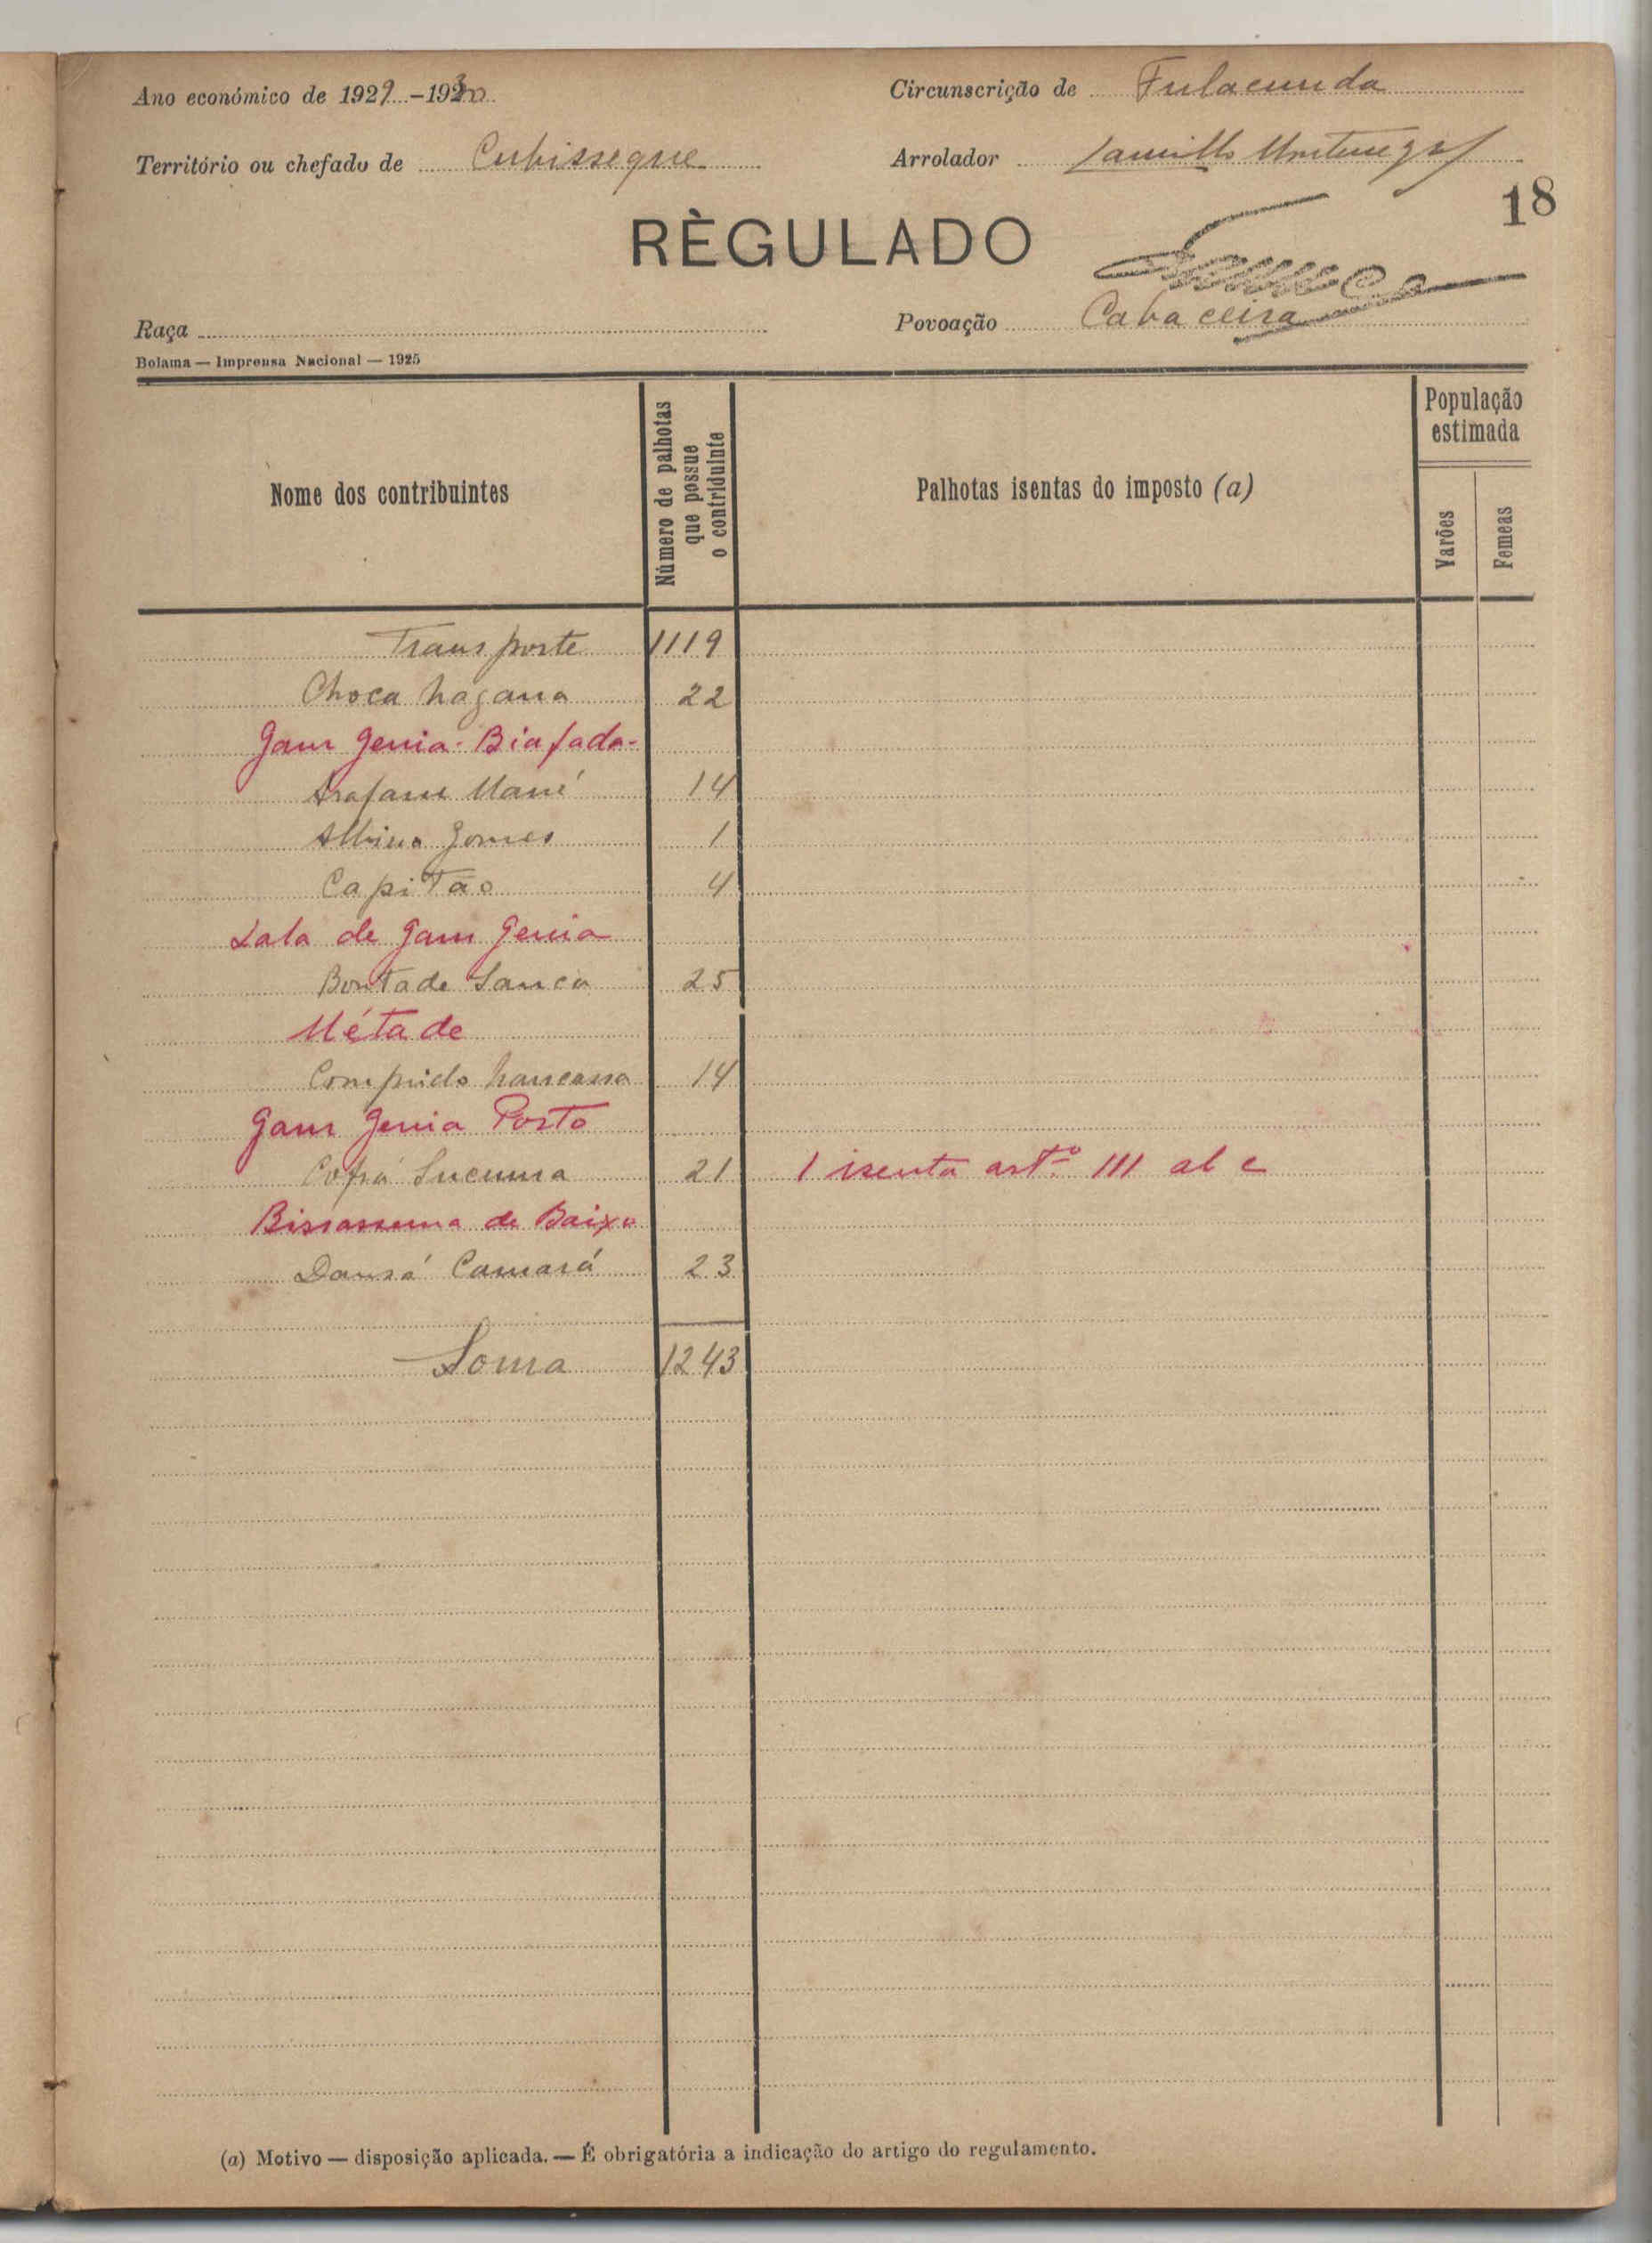 Ano económico de 1929-1930
Circunscrição de Fulacunda
Território ou chefado de Cubisseque
Arrolador
18
RÈGULADO
Raça
Povoação Cabaceira
Bolama — Imprensa Nacional — 1925
Nome dos contribuintes
Número de palhotas
que possue
o contriduinte
Palhotas isentas do imposto (a)
População
estimada
Varões
Femeas
Transporte 1119
Choca 22
Gam Genia - Biafada -
Arafam Mané 14
Albino Gomes 1
Capitão 4
Lala de Gam Genia
Bontade Sanca 25
Métade
Comprido 14
Gam Genia Porto
21 1 isenta artº 111 al c
Bissassema de Baixo
Dansá Camará 23
Soma 1243
(a) Motivo — disposição aplicada. — É obrigatória a indicação do artigo do regulamento.